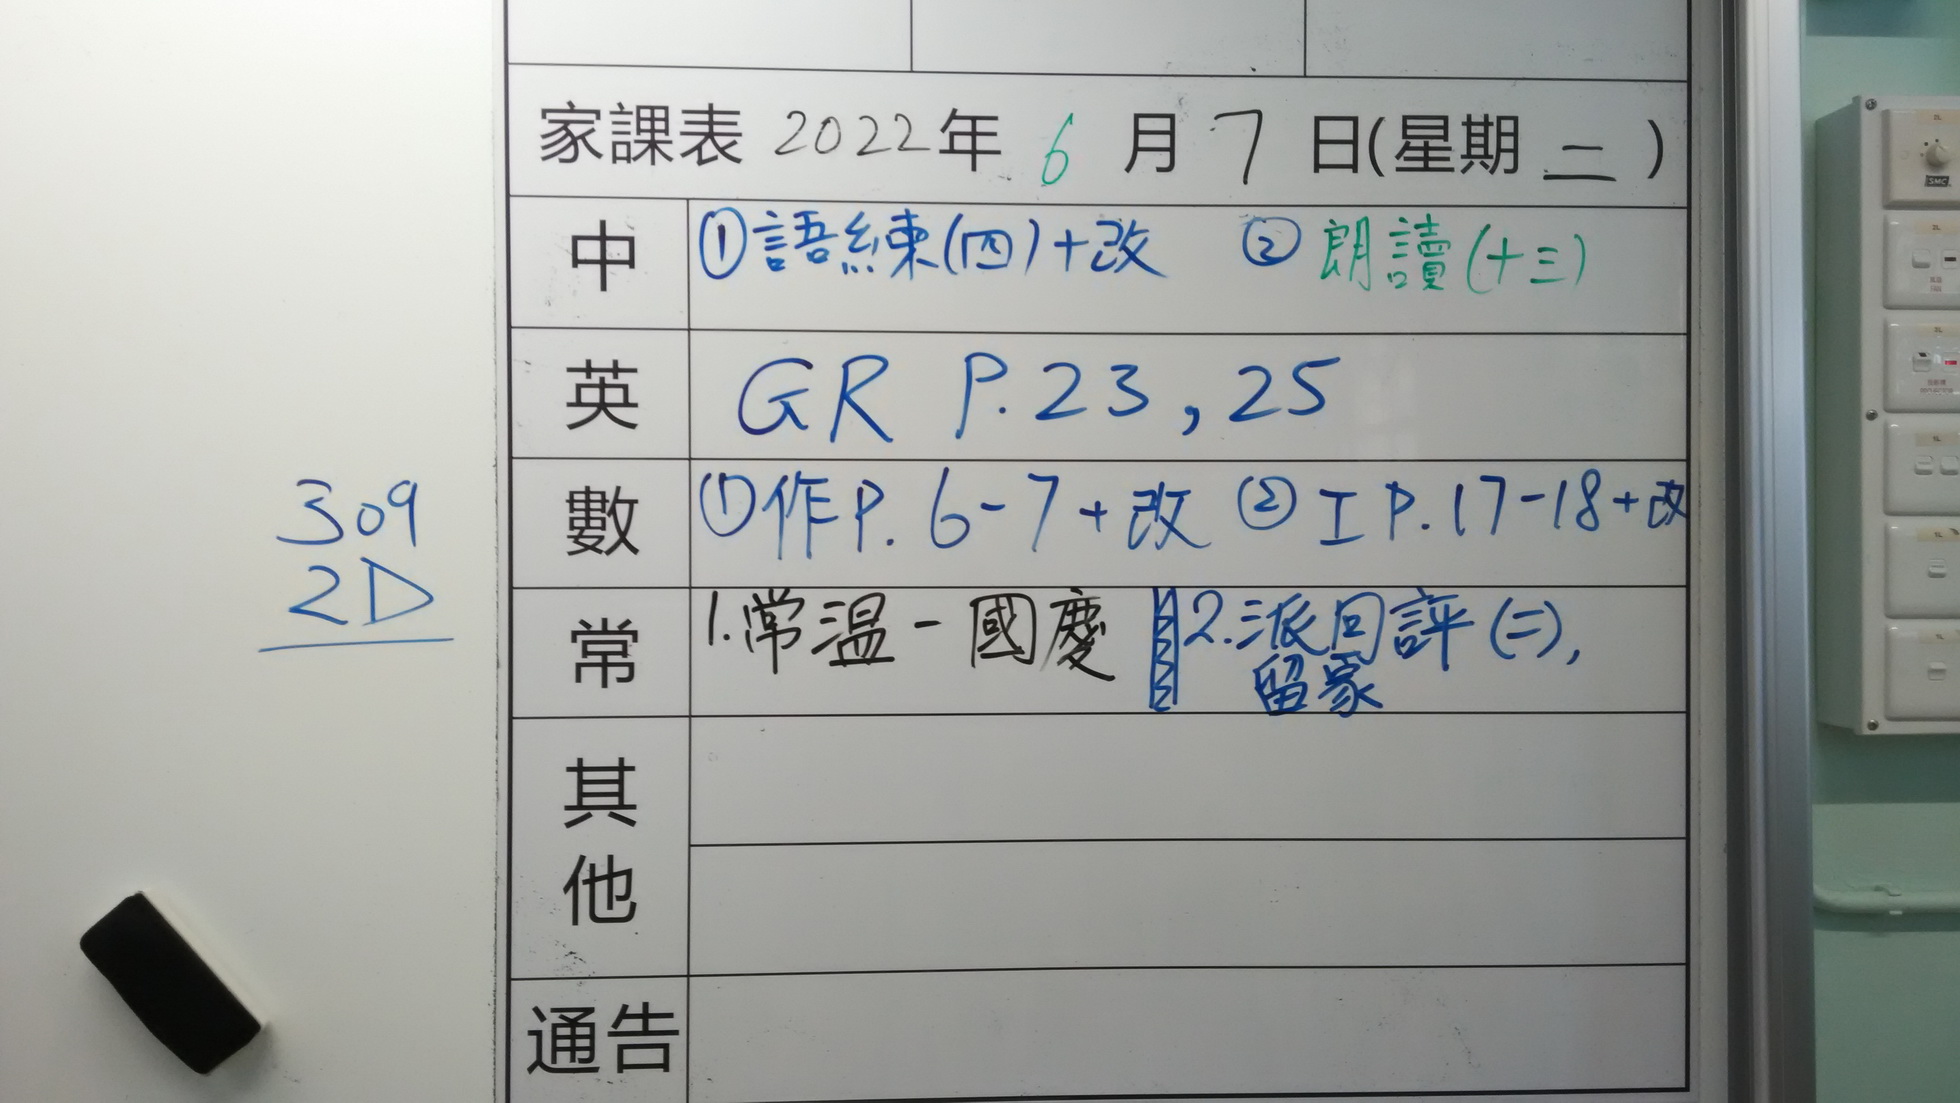 家課表 2022年 6 月 7 日(星期 二 )
中 ①語練(四)+改 ②朗讀(十三)
英 GR P.23,25
數 ①作P.6-7+改 ②工P.17-18+改
常 1.常溫-國慶 2.派回評(二),
留家
其他
通告
309
2D